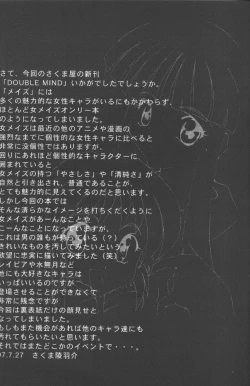 さて、今回のさくま屋の新刊
「DOUBLE MIND」いかがでしたでしょうか。
「メイズ」には
多くの魅力的な女性キャラがいるにもかかわらず、
ほとんど女メイズオンリー本
のようになってしまいました。
女メイズは最近の他のアニメや漫画の
強烈なまでに個性的な女性キャラに比べると
非常に没個性ではありますが、
回りにあれほど個性的なキャラクターに
囲まれていると
女メイズの持つ「やさしさ」や「清純さ」が
自然と引き出され、普通であることが、
とても魅力的に見えてくるのだと思います。
しかし今回の本では
そんな清らかなイメージを打ちくだくように
女メイズがあーんなことや
こーんなことになってますが、
これは男の誰もが持っている（？）
きれいなものを汚してみたいという
欲望に忠実に描いてみました（笑）
レイピアや水無月など
他にも大好きなキャラは
いっぱいいるのですが
登場させることができなくて
非常に残念ですが
今回は裏表紙だけの顔見せと
なってしまいました。
もしもまた機会があれば他のキャラ達にも
汚れてもらいたいと思います。
それではまたどこかのイベントで・・・。
97.7.27　さくま陵羽介